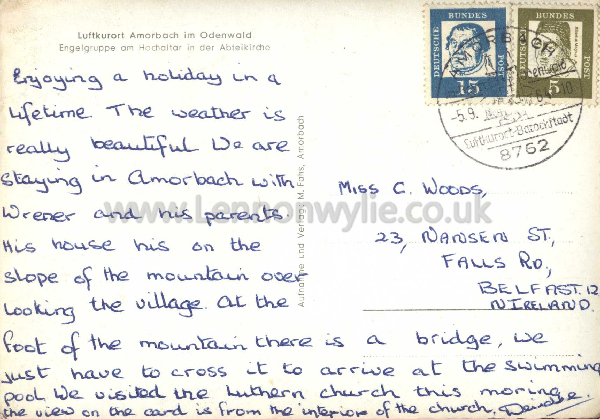 Luftkurort Amorbach im Odenwald
Engelgruppe am Hochaltar in der Abteikirche
Enjoying a holiday in a
lifetime. The weather is
really beautiful. We are
staying in Amorbach with
Wrener and his parents.
His house his on the
slope of the mountain over
looking the village. At the
foot of the mountain there is a bridge, we
just have to cross it to arrive at the swimming
pool. We visited the luthern church this moring.
the view on the card is from the interiors of the church. Deirdre.
Aufnahme und Verlag: M. Fahs, Amorbach
DEUTSCHE BUNDES POST
15
DEUTSCHE BUNDES POST
5
AMORBACH
-5.9.
10
Luftkurort-Barockstadt
8762
MISS C. WOODS,
23, NANSEN ST,
FALLS RD,
BELFAST. 12
N IRELAND.
www.Lennonwylie.co.uk